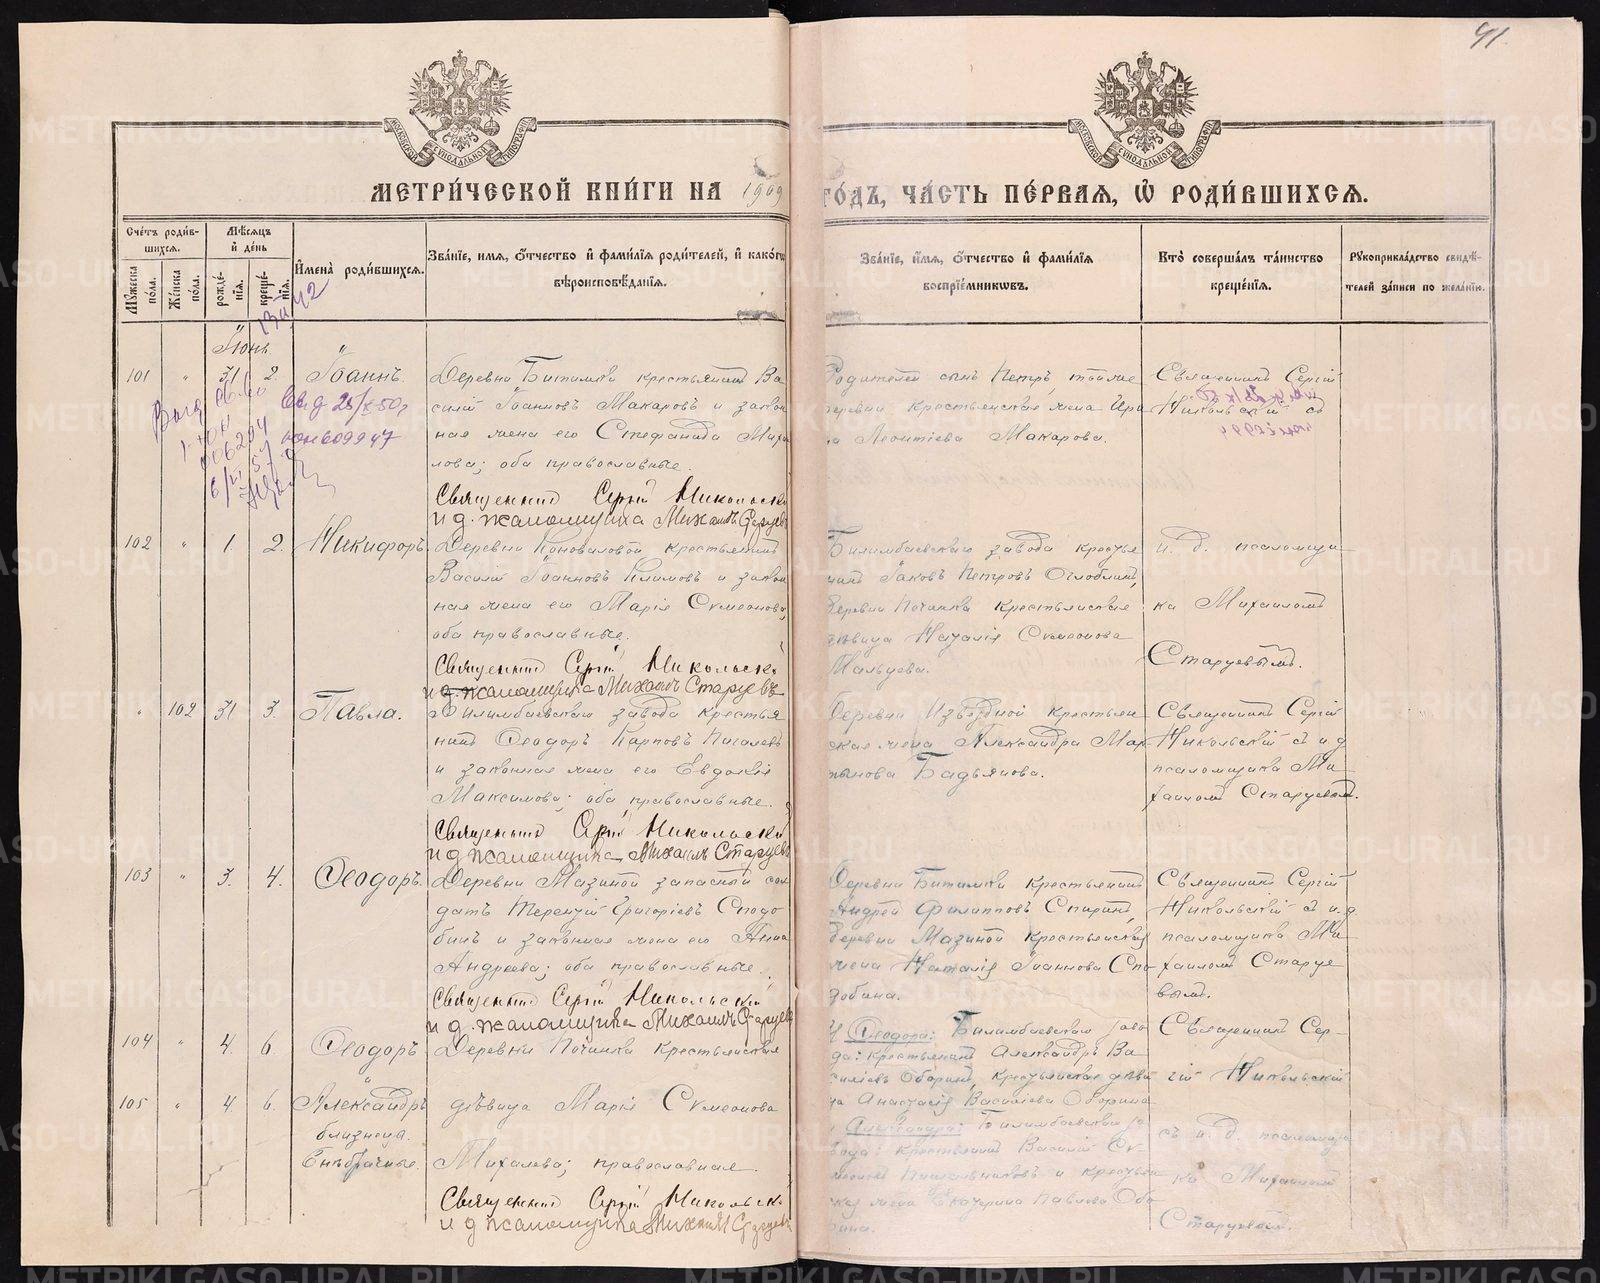 41.
МОСКОВСКОЙ СѴНОДАЛЬНОЙ ТИПОГРАФІИ
МОСКОВСКОЙ СѴНОДАЛЬНОЙ ТИПОГРАФІИ
МЕТРИ́ЧЕСКОЙ КНИ́ГИ НА 1909
ГО́ДЪ, ЧА́СТЬ ПЕ́РВАЯ, Ѽ РОДИ́ВШИХСЯ.
Сче́тъ роди́в-
шихся.
Му́жеска по́ла.
Же́нска по́ла.
Мѣ́сяцъ и де́нь
рожде́-
нія.
креще́-
нія.
Имена̀ роди́вшихся.
Зва́ніе, имя, о́тчество и фами́лія роди́телей, и како́го
вѣроисповѣ́данія.
Зва́ніе, и́мя, о́тчество и фами́лія
воспріе́мниковъ.
Кто̀ соверша́лъ та́инство
креще́нія.
Рукоприкла́дство свидѣ́-
телей за́писи по жела́нію.
Іюнь
101 " 31 2. Іоаннъ.
Деревни Битимки крестьянинъ Ва
силій Іоанновъ Макаровъ и закон
ная жена его Стефанида Миха
лова; оба православные.
Священникъ Сергій Никольскі
и д. псаломщика Михаилъ Старцевъ
Родителей сынъ Петръ, той же
деревни крестьянская жена Ири
на Леонтіева Макарова.
Священникъ Сергій
Никольскій съ
Свид 25/X-50 г
ЮН 609947
102 " 1. 2. Никифоръ.
Деревни Коноваловой крестьянинъ
Василій Іоанновъ Климовъ и закон
ная жена его Марія Сѵмеонова;
оба православные.
Священникъ Сергій Никольскі
и д. псаломщика Михаилъ Старцевъ
Билимбаевскаго завода крестья
нинъ Іаковъ Петровъ Оглоблинъ,
деревни Починка крестьянская
дѣвица Наталія Сѵмеонова
Мальцева.
и. д. псаломщи
ка Михаиломъ
Старцевымъ.
" 102 31 3. Павла.
Билимбаевскаго завода крестья
нинъ Ѳеодоръ Карповъ Пигалевъ
и законная жена его Евдокія
Максимова; оба православные.
Священникъ Сергій Никольскій
и д псаломщика Михаилъ Старцевъ
Деревни Извѣздной крестьян
ская жена Александра Мар
тынова Бадьянова.
Священникъ Сергій
Никольскій съ и д
псаломщика Ми
хаиломъ Старцевымъ.
103 " 3. 4. Ѳеодоръ.
Деревни Мазиной запасный сол
датъ Терентій Григоріевъ Сподо
бинъ и законная жена его Анна
Андреева; оба православные.
Священникъ Сергій Никольскій
и д. псаломщика Михаилъ Старцевъ
Деревни Битимки крестьянинъ
Андрей Филипповъ Спиринъ,
деревни Мазиной крестьянская
жена Наталія Іоаннова Спо
добина.
Священникъ Сергій
Никольскій съ и. д
псаломщика Ми
хаиломъ Старце
вымъ.
104 " 4. 6. Ѳеодоръ
и
105 " 4. 6. Александръ
близнецы.
Внѣбрачные.
Деревни Починка крестьянская
дѣвица Марія Сѵмеонова
Михалева; православная.
Священникъ Сергій Никольскі
и д псаломщика Михаилъ Старцевъ
У Ѳеодора: Билимбаевскаго заво
да: крестьянинъ Александръ Ва
силіевъ Оборинъ, крестьянская дѣви
ца Анастасія Василіева Оборина
у Александра: Билимбаевскаго за
вода: крестьянинъ Василій Сѵ
меоновъ Пшеничниковъ и крестьян
ская жена Екатерина Павлова Обо
рина.
Священникъ Сер-
гій Никольскій
съ и. д. псаломщи
ка Михаиломъ
Старцевымъ.